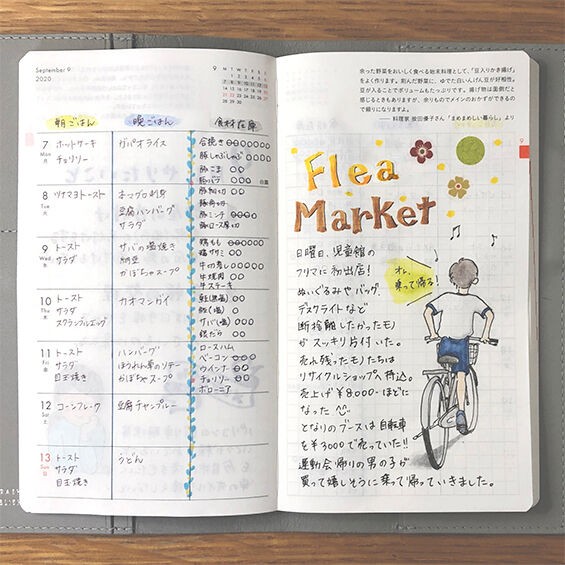 September 9
2020
9
朝ごはん
晩ごはん
食材在庫
7
Mon
月
ホットケーキ
チョリソー
ガパオライス
合挽き
豚しゃぶしゃぶ
豚こま
8
Tue
火
ツナマヨトースト
本マグロ刺身
豆腐ハンバーグ
サラダ
豚ミンチ
豚ロース厚切
9
Wed
水
トースト
サラダ
サバの塩焼き
納豆
かぼちゃスープ
鶏もも
鶏ササミ
牛切落し
牛焼肉
牛ステーキ
10
Thu
木
トースト
サラダ
スクランブルエッグ
カオマンガイ
鮭(塩)
サバ(塩)
銀だら
11
Fri
金
トースト
サラダ
目玉焼き
ハンバーグ
ほうれん草のソテー
かぼちゃスープ
ロースハム
ベーコン
ウインナー
チョリソー
ボローニア
12
Sat
土
コーンフレーク
豆腐チャンプルー
13
Sun
日
トースト
サラダ
目玉焼き
うどん
余った野菜をおいしく食べる始末料理として、「豆入りかき揚げ」
をよく作ります。刻んだ野菜に、ゆでた白いんげん豆が好相性。
豆が入ることでボリュームもたっぷりです。揚げ物は面倒だと
感じるときもありますが、余りものでメインのおかずができるの
で頼りになりますよ。
9
Flea
Market
日曜日、児童館の
フリマに初出店!
ぬいぐるみやバッグ、
デスクライトなど
断捨離したかったモノ
がスッキリ片付いた。
売れ残ったモノたちは
リサイクルショップへ持込。
売上げ¥8,000-ほどに
なった
となりのブースは自転車
を¥3000で売っていた!!
運動会帰りの男の子が
買って嬉しそうに乗って帰っていきました。
オレ、
乗って帰る!